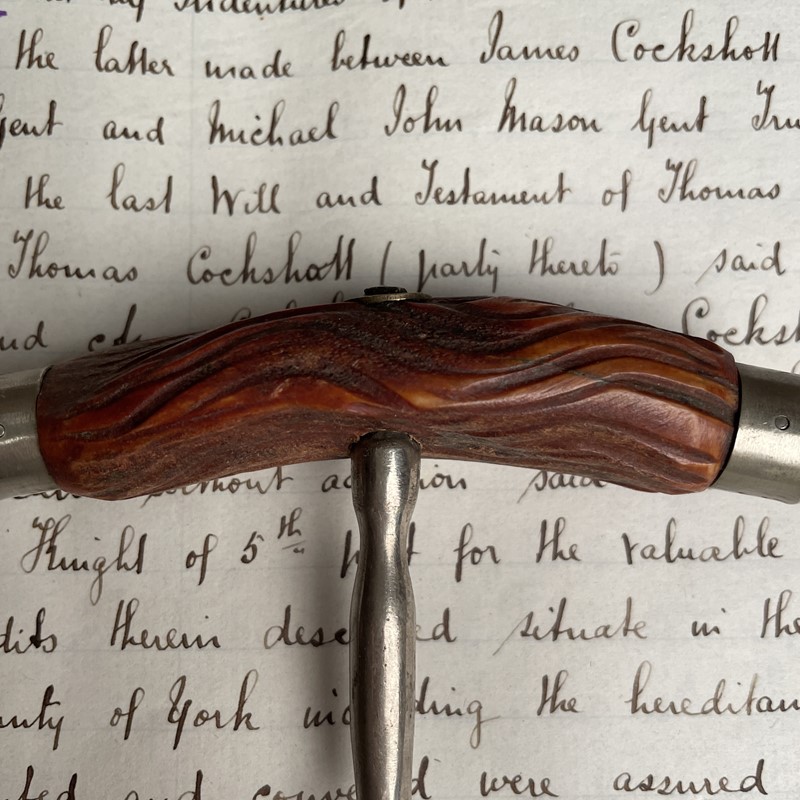 my Indentures
the latter made between James Cockshott
Gent and Michael John Mason Gent Tru
the last Will and Testament of Thomas
Thomas Cockshott ( party thereto ) said
Cocksh
without said
Knight of 5th for the valuable
dits therein desc ed situate in the
unty of York inc ding the hereditam
and conve d were assured